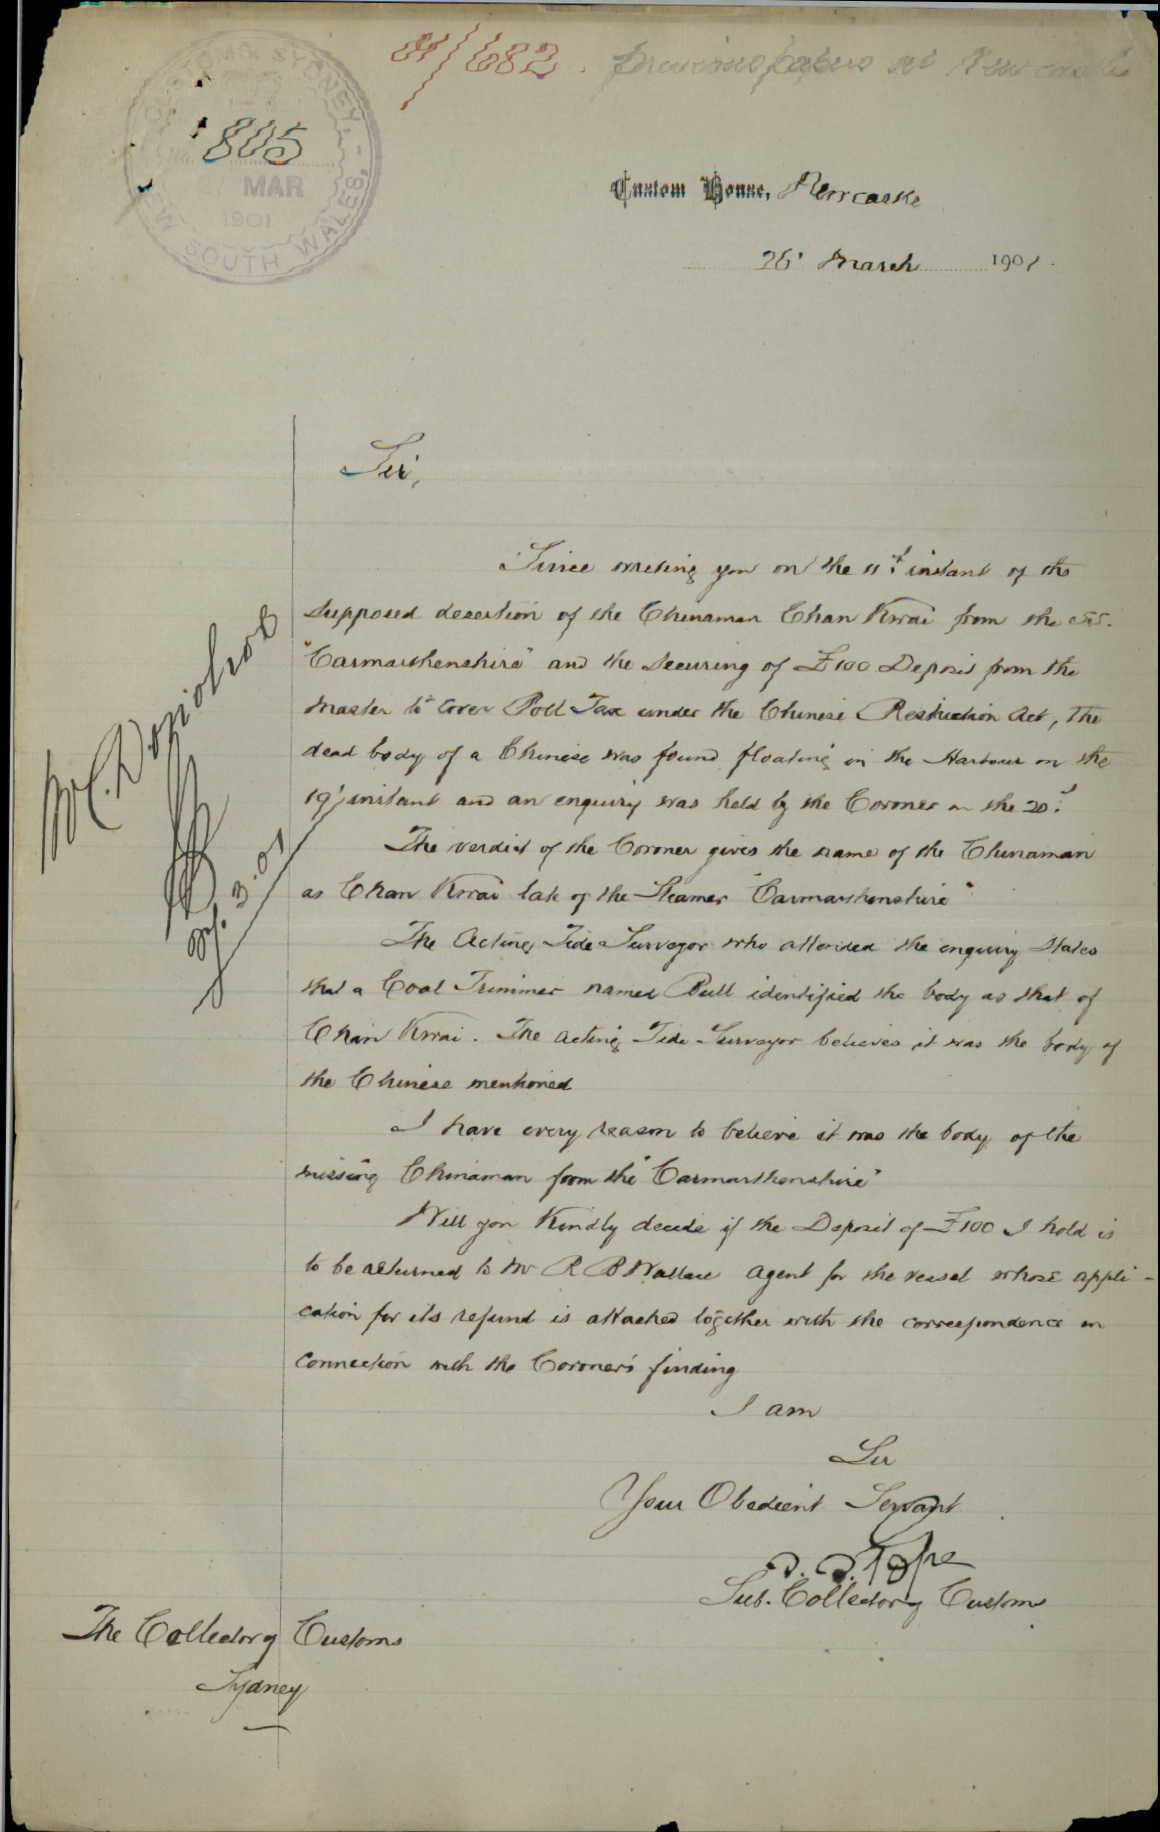 01/682. previous papers at Newcastle
CUSTOMS SYDNEY,
805
27 MAR
1901
NEW SOUTH WALES,
Custom House, Newcastle
26' March 1901.
Sir,
Since writing you on the 11th instant of the
supposed desertion of the Chinaman Chan Kwai from the S.S.
"Carmarthenshire" and the securing of £100 Deposit from the
Master to cover Poll Tax under the Chinese Restriction Act, the
dead body of a Chinese was found floating in the Harbour on the
19' instant and an enquiry was held by the Coroner on the 20th.
The verdict of the Coroner gives the name of the Chinaman
as Chan Kwai late of the Steamer "Carmarthenshire"
The Acting Tide Surveyor who attended the enquiry states
that a Coal Trimmer named Bull identified the body as that of
Chan Kwai. The Acting Tide Surveyor believes it was the body of
the Chinese mentioned
I have every reason to believe it was the body of the
missing Chinaman from the "Carmarthenshire"
Will you Kindly decide if the Deposit of £100 I hold is
to be returned to Mr R B Wallace agent for the vessel whose appli-
cation for its refund is attached together with the correspondence in
connection with the Coroner's finding
I am
Sir
Your Obedient Servant
Sub. Collector of Customs
The Collector of Customs
Sydney
Mr.
3.01